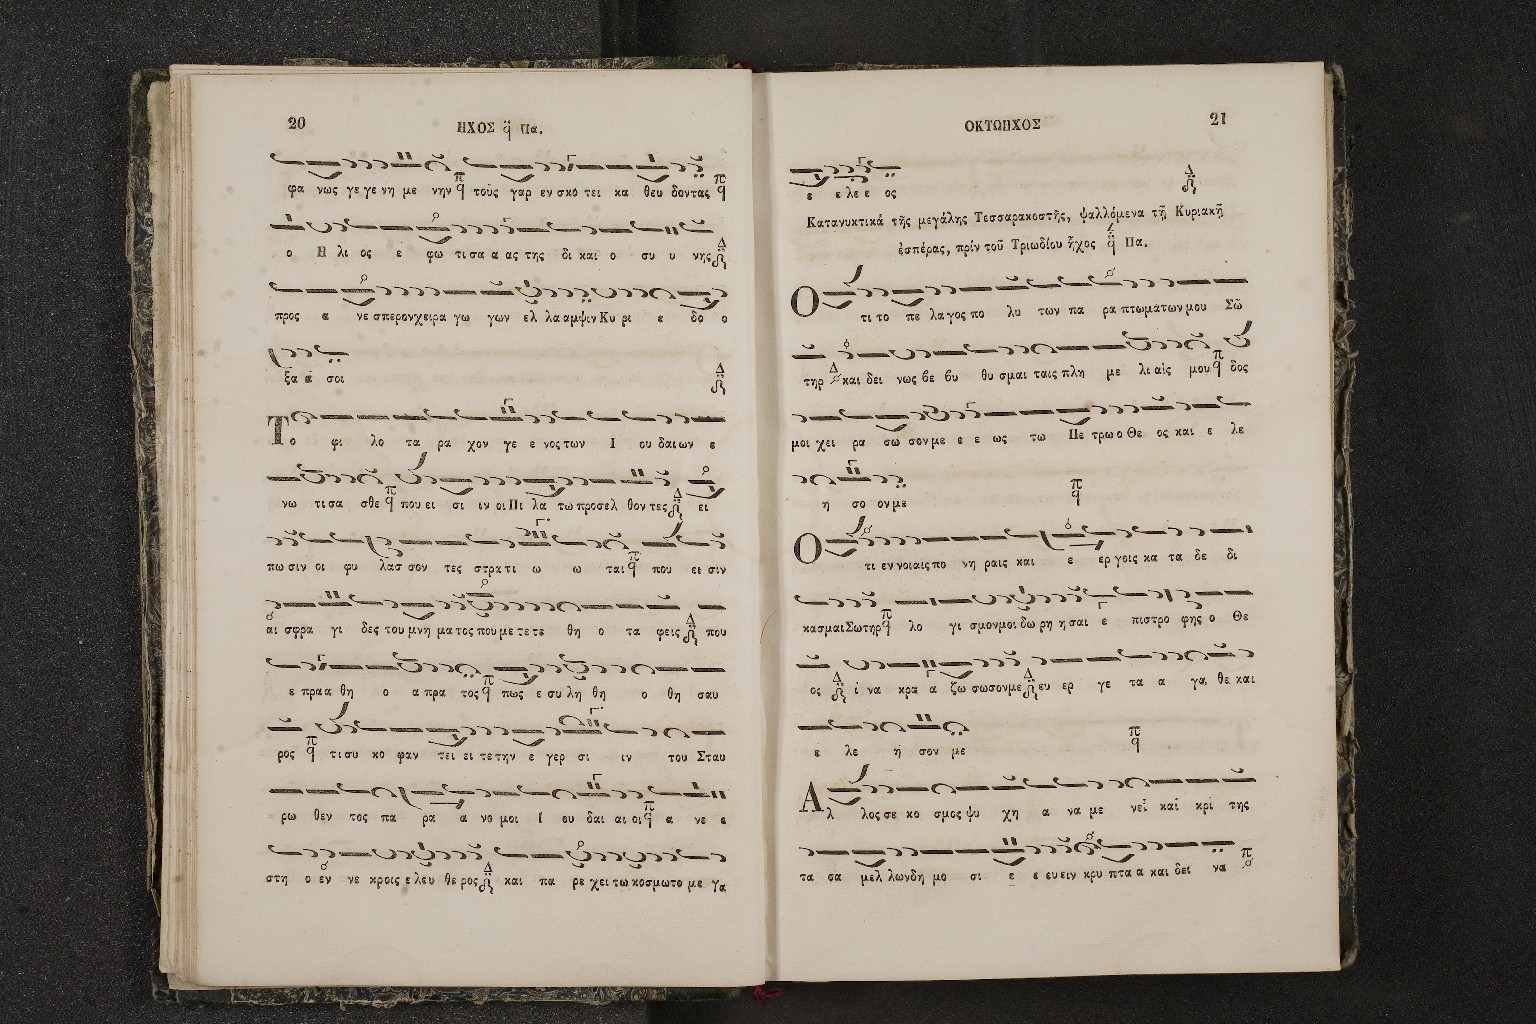 20
ΗΧΟΣ q̈ Πα.
φα νως γε γε νη με νην τοὺς γαρ εν σκο τει κα θευ δοντας
ο Η λι ος ε φω τι σα α ας της δι και ο συ υ νης
προς α νε σπερον χειρα γω γων ελ λα αμψιν Κυ ρι ε δο ο
ξα α σοι
Το φι λο τα ρα χον γε ε νος των Ι ου δαι ων ε
νω τι σα σθε που ει σι ιν οι Πι λα τω προσελ θον τες ει
πω σιν οι φυ λασ σον τες στρα τι ω ω ται που ει σιν
αι σφρα γι δες του μνη μα τος που με τε τε θη ο τα φεις που
ε πρα α θη ο α πρα τος πως ε συ λη θη ο θη σαυ
ρος τι συ κο φαν τει ει τε την ε γερ σι ιν του Σταυ
ρω θεν τος πα ρα α νο μοι Ι ου δαι αι οι α νε ε
στη ο εν νε κροις ε λευ θε ρος και πα ρε χει τω κοσμω το με γα
ΟΚΤΩΗΧΟΣ
21
ε ε λε ε ος
Κατανυκτικά τῆς μεγάλης Τεσσαρακοστῆς, ψαλλόμενα τῇ Κυριακῇ
ἑσπέρας, πρὶν τοῦ Τριωδίου ἦχος q̈ Πα.
Ο τι το πε λα γος πο λυ των πα ρα πτωμάτων μου Σῶ
τηρ και δει νως βε βυ θυ σμαι ταις πλη με λι αίς μου δος
μοι χει ρα σω σον με ε ε ως τω Πε τρω ο Θε ος και ε λε
η σο ον με
Ο τι εν νοιαις πο νη ραις και ε εργοις κα τα δε δι
κασμαι Σωτηρ λο γι σμον μοι δω ρη η σαι ε πιστρο φης ο Θε
ος ί να κρα α ζω σωσον με ευ ερ γε τα α γα θε και
ε λε ή σον με
Αλ λος σε κο σμος ψυ χη α να με νεί καί κρί της
τα σα μελ λων δη μο σι ε ε ευειν κρυ πτα α και δει να